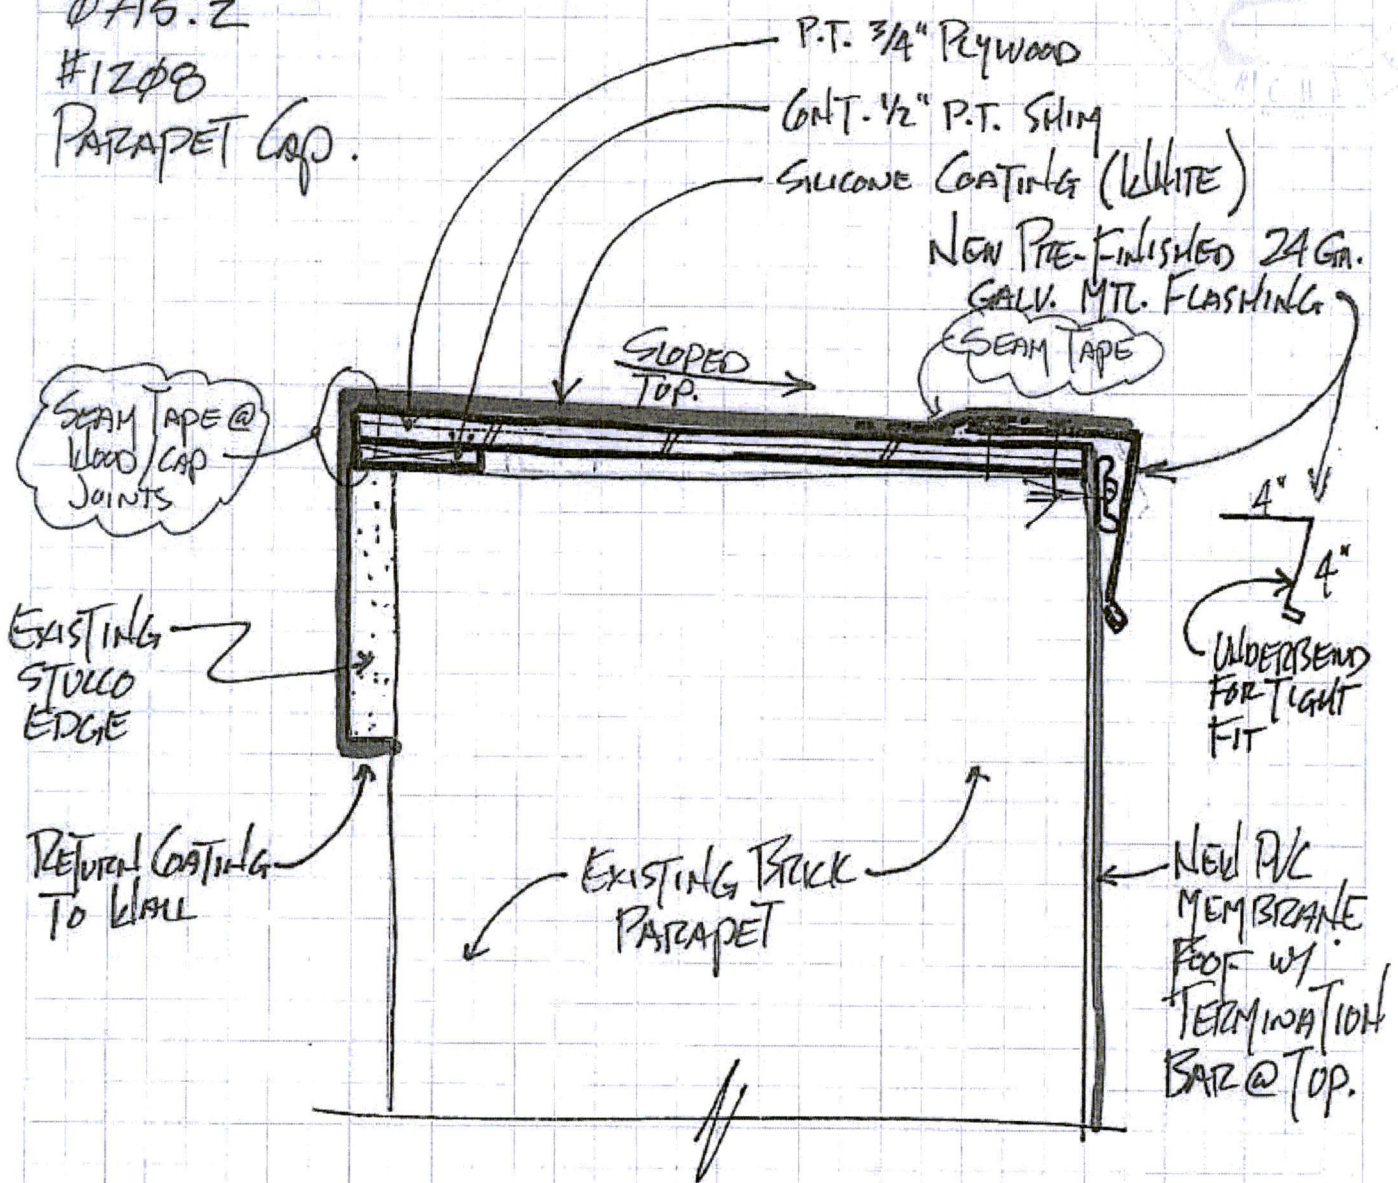 #12Ø8
PARAPET CAP.
P.T. 3/4" PLYWOOD
CONT. 1/2" P.T. SHIM
SILICONE COATING (WHITE)
NEW PRE-FINISHED 24 GA.
GALV. MTL. FLASHING
SEAM TAPE
SLOPED
TOP.
SEAM TAPE @
WOOD CAP
JOINTS
4"
4"
UNDERBEND
FOR TIGHT
FIT
EXISTING
STUCCO
EDGE
RETURN COATING
TO WALL
EXISTING BRICK
PARAPET
NEW PVC
MEMBRANE
ROOF W/
TERMINATION
BAR @ TOP.